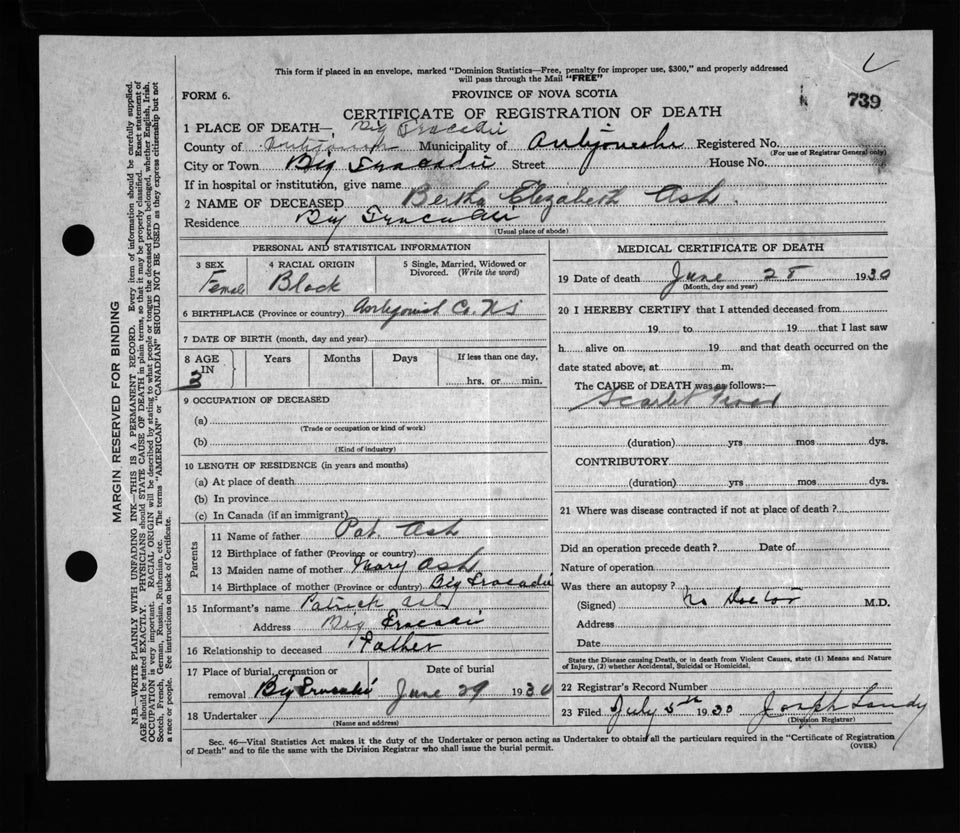 This form if placed in an envelope, marked "Dominion Statistics—Free, penalty for improper use, $300," and properly addressed
will pass through the Mail "FREE"
FORM 6. PROVINCE OF NOVA SCOTIA 739
CERTIFICATE OF REGISTRATION OF DEATH
1 PLACE OF DEATH—, Big Tracadie
County of Antigonish Municipality of Antigonish Registered No.
(For use of Registrar General only)
City or Town Big Tracadie Street House No.
If in hospital or institution, give name
2 NAME OF DECEASED Bertha Elizabeth Ash.
Residence Big Tracadie
(Usual place of abode)
PERSONAL AND STATISTICAL INFORMATION
3 SEX Female
4 RACIAL ORIGIN Black
5 Single, Married, Widowed or
Divorced. (Write the word)
6 BIRTHPLACE (Province or country) Antigonish Co. N S
7 DATE OF BIRTH (month, day and year)
8 AGE IN 3 Years Months Days If less than one day,
hrs. or min.
9 OCCUPATION OF DECEASED
(a)
(Trade or occupation or kind of work)
(b)
(Kind of industry)
10 LENGTH OF RESIDENCE (in years and months)
(a) At place of death
(b) In province
(c) In Canada (if an immigrant)
Parents
11 Name of father Pat. Ash
12 Birthplace of father (Province or country)
13 Maiden name of mother Mary Ash
14 Birthplace of mother (Province or country) Big Tracadie
15 Informant's name Patrick Ash
Address Big Tracadie
16 Relationship to deceased Father
17 Place of burial, cremation or
removal Big Tracadie
Date of burial
June 29 1930
18 Undertaker
(Name and address)
MEDICAL CERTIFICATE OF DEATH
19 Date of death June 28 1930
(Month, day and year)
20 I HEREBY CERTIFY that I attended deceased from
19 to 19 that I last saw
h alive on 19 and that death occurred on the
date stated above, at m.
The CAUSE of DEATH was as follows:—
Scarlet Fever
(duration) yrs mos dys.
CONTRIBUTORY
(duration) yrs mos dys.
21 Where was disease contracted if not at place of death?
Did an operation precede death? Date of
Nature of operation
Was there an autopsy?
(Signed) No Doctor M.D.
Address
Date
State the Disease causing Death, or in death from Violent Causes, state (1) Means and Nature
of Injury, (2) whether Accidental, Suicidal or Homicidal.
22 Registrar's Record Number
23 Filed July 5th 1930 Joseph Landry
(Division Registrar)
Sec. 46—Vital Statistics Act makes it the duty of the Undertaker or person acting as Undertaker to obtain all the particulars required in the "Certificate of Registration
of Death" and to file the same with the Division Registrar who shall issue the burial permit.
(OVER)
MARGIN RESERVED FOR BINDING
N.B.—WRITE PLAINLY WITH UNFADING INK—THIS IS A PERMANENT RECORD. Every item of information should be carefully supplied.
AGE should be stated EXACTLY. PHYSICIANS should STATE CAUSE OF DEATH in plain terms, so that it may be properly classified. Exact statement of
OCCUPATION is very important. RACIAL ORIGIN will be described by stating to what people or tongue the deceased person belonged, whether English, Irish,
Scotch, French, German, Russian, Ruthenian, etc. The terms "AMERICAN" or "CANADIAN" SHOULD NOT BE USED as they express citizenship but not
a race or people. See instructions on back of Certificate.